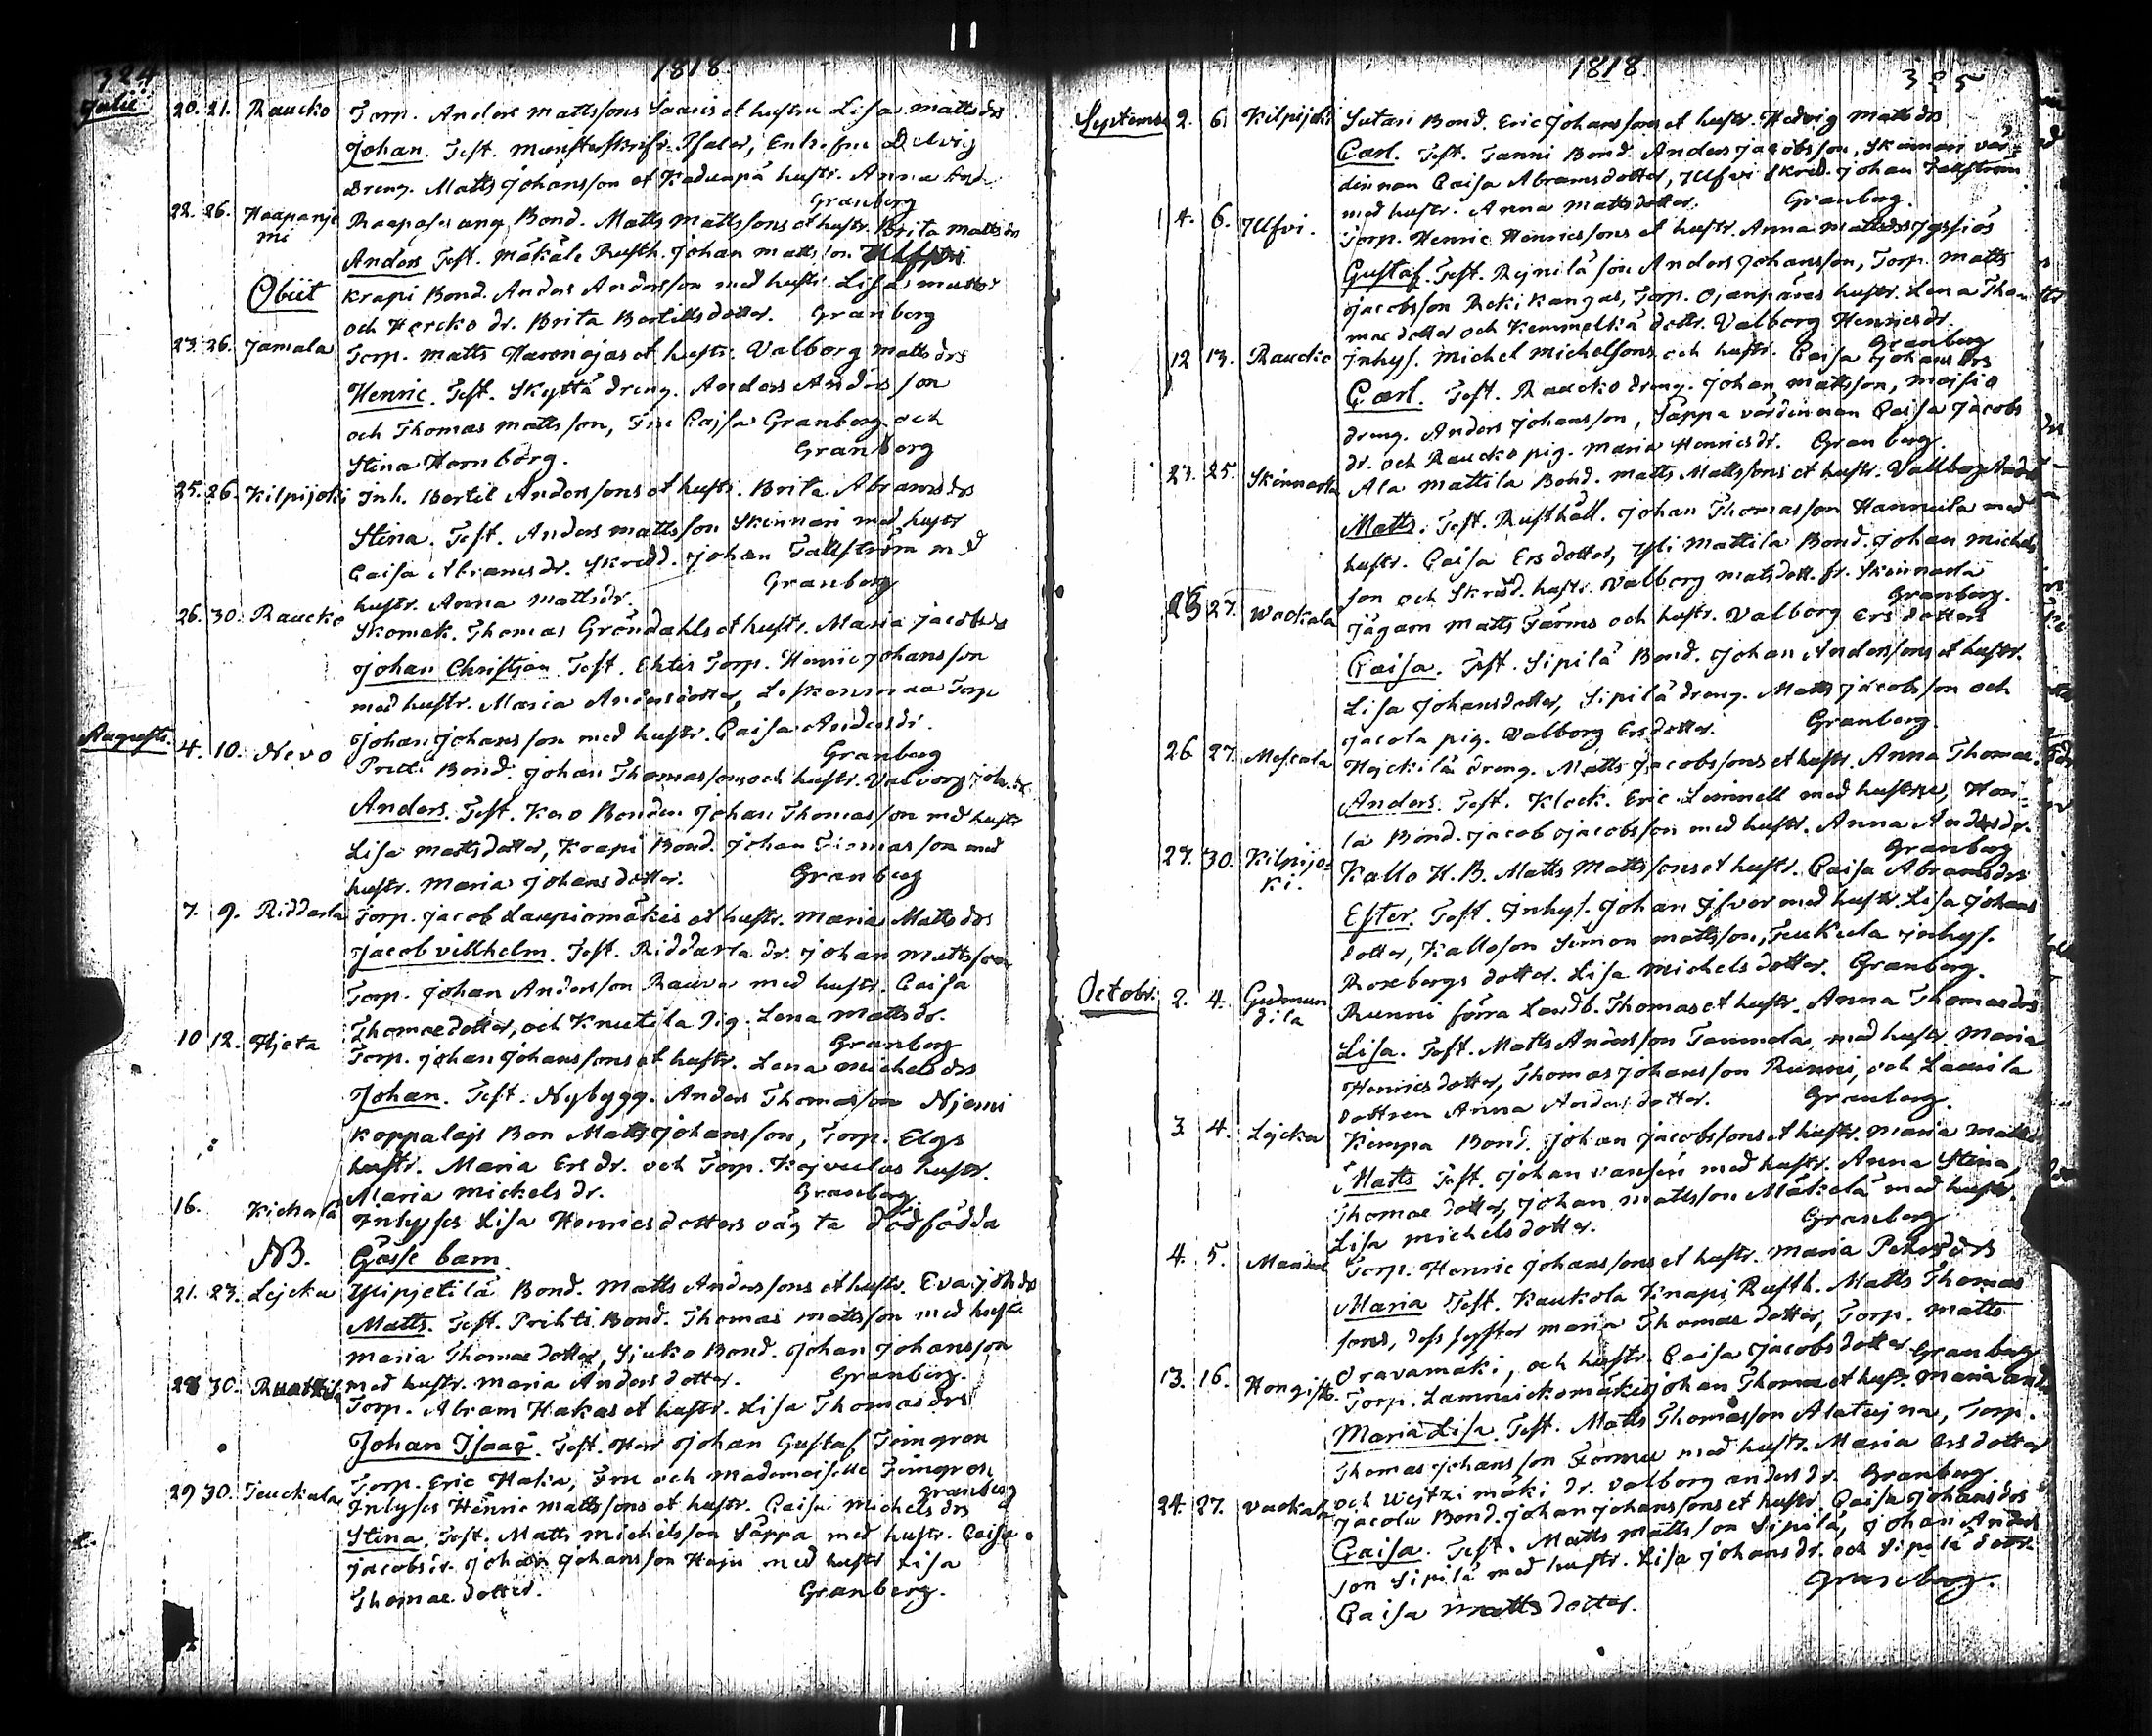 324
1818.
Julii
20. 21. Raucko Torp. Anders Mattssons Saaris et hustru Lisa Matts drs
Johan. Test. Enkefru
Dreng. Matts Johansson et hustr. Anna
Granberg
22. 26. Haapanje Bond. Matts Mattssons et hustr. Brita Matts dr
mi
Anders Test. Mäkälä Rusth. Johan Mattsson
Obiit Krapi Bond. Anders Andersson med hustr. Lisa Matts dr
och Hercko dr. Brita Bertills dotter. Granberg
23. 26. Jamala Torp. Matts Haronojas et hustr. Valborg Matts drs
Henric. Test. Skyttä dreng. Anders Andersson
och Thomas Mattsson, Fru Cajsa Granberg och
Stina Hornborg. Granberg
25. 26. Kilpijoki Inh. Bertil Anderssons et hustr. Brita Abrams drs
Stina. Test. Anders Mattsson Skinnari med hustr
Caisa Abrams dr. Skredd. Johan Tallström med
hustr. Anna Matts dr. Granberg
26. 30. Raucko Skomak. Thomas Gröndahls et hustr. Maria Jacobs drs
Johan Christian Test. Ehtis Torp. Henric Johansson
med hustr. Maria Anders dotter, Leskenmaa Torp
Johan Johansson med hustr. Caisa Anders dr.
Granberg
Augusti.
4. 10. Nevo Bond. Johan Thomassons och hustr. Valborg Joh. dr
Anders. Test. Bonden Johan Thomasson med hustr
Lisa Matts dotter, Krapi Bond. Johan Tomasson med
hustr. Maria Johans dotter. Granberg
7. 9. Riddarla Torp. Jacob et hustr. Maria Matts drs
Jacob villhelm. Test. Riddarla dr. Johan Mattsson
Torp. Johan Andersson Rauva med hustr. Caisa
Thomae dotter, och Knutila Pig. Lena Matts dr.
Granberg
10 12. Hjeta Torp. Johan Johanssons et hustr. Lena Michels drs
Johan. Test. Nybygg. Anders Thomasson Njemi
Matts Johansson, Torp. Elgs
hustr. Maria Ers dr. och Torp. hustr.
Maria Michels dr. Granberg.
16. Kichala Inhyses Lisa Henrics dotters oäg ta dödfödda
NB. Gosse barn.
21. 23. Lejcku Ylipjetilä Bond. Matts Anderssons et hustr. Eva Joh drs
Matts. Test. Prihti Bond. Thomas Mattsson med hustr
Maria Thomae dotter, Sjuko Bond. Johan Johansson
med hustr. Maria Anders dotter. Granberg.
28 30. Torp. Abram Hakas et hustr. Lisa Thomas drs
Johan Isaac. Test. Herr Johan Gustaf Timgren
Torp. Eric Haka, Fru och Mademoiselle Timgren
Granberg
29 30. Teuckula Inhyses Henric Mattssons et hustr. Caisa Michels drs
Stina. Test. Matts Michelsson Säppä med hustr. Caisa
Jacobs dr. Johan Johansson Haju med hustr Lisa
Thomae dotter. Granberg.
1818.
325
Septembr 2. 6. Kilpijoki Sutari Bond. Eric Johanssons et hustr. Hedvig Matts drs
Carl. Test. Tanni Bond. Anders Jacobsson, Skinnari vär-
dinnan Caisa Abrams dotter, Ylfvi Skred. Johan Tallström
med hustr. Anna Matts dotter. Granberg.
4. 6. Ylfvi. Torp. Henric Henricssons et hustr. Anna Matts drs
Gustaf. Test. Anders Johansson, Torp. Matts
Jacobsson Rekikangas, Torp. Ojanpäras hustr. Lena Tho-
mae dotter och dottr. Valborg Henrics dr.
Granberg
12 13. Raucko Inhys. Michel Michelsons och hustr. Caisa Johans drs
Carl. Test. Raucko dreng. Johan Mattsson, Moisio
dreng. Anders Johansson, Säppä värdinnan Caisa Jacobs
dr. och Raucko pig. Maria Henrics dr. Granberg.
23. 25. Skinnarla Ala Mattila Bond. Matts Mattssons et hustr. Vallborg
Matts. Test. Rusthåll. Johan Thomasson Hannula med
hustr. Caisa Ers dotter, Yli Mattila Bond. Johan Michels
son och Skrad. hustr. Valborg Mats dott. fr. Skinnarla
Granberg.
27. Wackala Jägarn Matts Färms och hustr. Valborg Ers dotters
Caisa. Test. Sipilä Bond. Johan Anderssons et hustr.
Lisa Johans dotter, Sipilä dreng. Matts Jacobsson och
Jacola pig. Valborg Ers dotter. Granberg.
26 27. Mescala Hejckilä dreng. Matts Jacobssons et hustr. Anna Thomae
Anders. Test. Klock. Eric med hustru,
la Bond. Jacob Jacobsson med hustr. Anna Anders dr.
Granberg
27. 30. Kilpijo=
ki. Kallo H. B. Matts Mattssons et hustr. Caisa Abrams drs
Ester. Test. Inhys. Johan Isver med hustr. Lisa Johans
dotter, Kallo son Simon Mattsson, Teukula inhys.
Rosebergs dotter. Lisa Michels dotter. Granberg.
Octobr. 2. 4. Gudmun
dila Runni förra Landb. Thomas et hustr. Anna Thomas drs
Lisa. Test. Matts Andersson Tammela med hustr. Maria
Henrics dotter, Thomas Johansson Runni, och Laurila
dottren Anna Anders dotter. Granberg.
3. 4. Lejcku Kimpa Bond. Johan Jacobssons et hustr. Maria Matts
Matts Test. Johan med hustr. Anna Stina
Thomae dotter, Johan Mattsson Mäkelä med hustr.
Lisa Michels dotter. Granberg
4. 5. Torp. Henric Johanssons et hustr. Maria Peters drs
Maria Test. Kaukola Knapi Rusth. Matts Thomas
sons, dess syster Maria Thomae dotter, Torp. Matts
Oravamäki, och hustr. Caisa Jacobs dotter Granberg
13. 16. Hongisto. Torp. Johan Thomae et hustr. Maria
Maria Lisa. Test. Matts Thomasson Torp.
Thomas Johansson med hustr. Maria Ers dotter
och mäki dr. Valborg Anders dr. Granberg.
24. 27. Vackala Jacola Bond. Johan Johanssons et hustr. Caisa Johans drs
Caisa. Test. Matts Mattsson Sipilä, Johan Anders
son Sipilä med hustr. Lisa Johans dr. och Sipilä dottr.
Granberg.
Caisa Matts dotter.